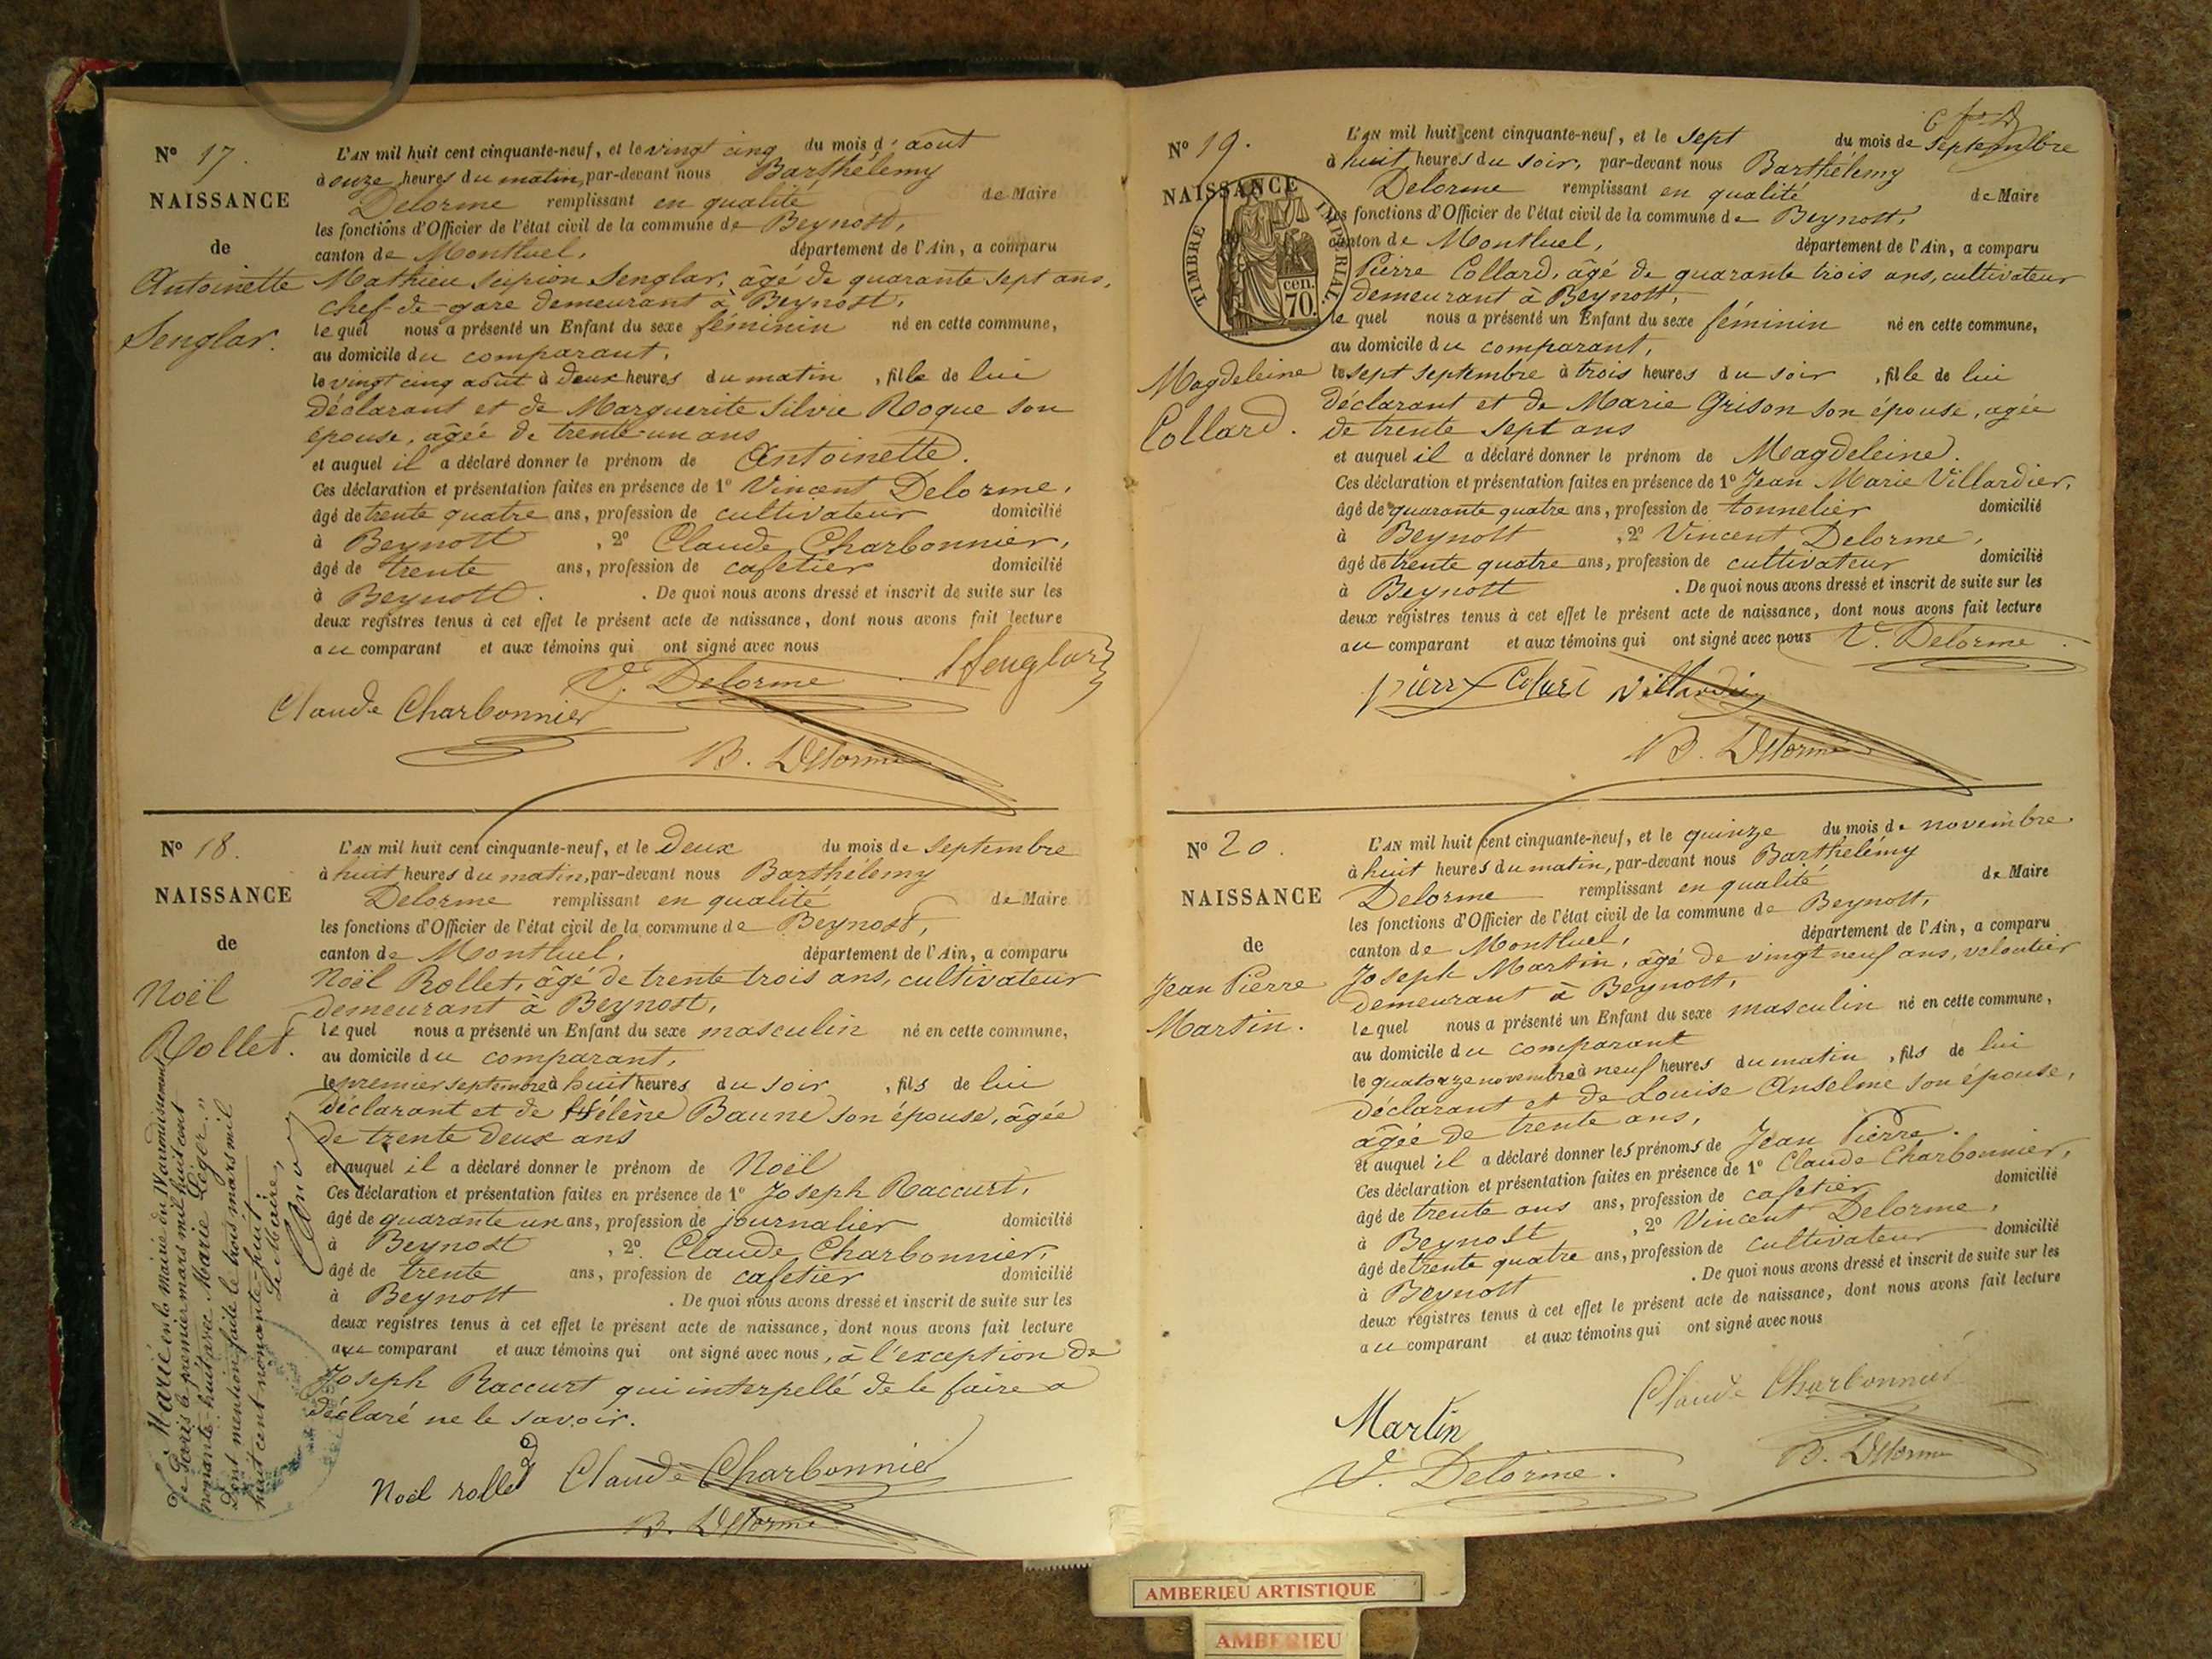 N° 17.
NAISSANCE
de
Antoinette
Senglar.
L'AN mil huit cent cinquante-neuf, et le vingt cinq du mois d'août
à onze heures du matin, par-devant nous Barthélemy
Delorme remplissant en qualité de Maire
les fonctions d'Officier de l'état civil de la commune de Beynost,
canton de Montluel, département de l'Ain, a comparu
Mathieu Scipion Senglar, âgé de quarante sept ans,
chef-de-gare demeurant à Beynost,
lequel nous a présenté un Enfant du sexe féminin né en cette commune,
au domicile du comparant,
le vingt cinq août à deux heures du matin, fille de lui
déclarant et de Marguerite Silvie Roque son
épouse, âgée de trente-un ans
et auquel il a déclaré donner le prénom de Antoinette.
Ces déclaration et présentation faites en présence de 1° Vincent Delorme,
âgé de trente quatre ans, profession de cultivateur domicilié
à Beynost, 2° Claude Charbonnier,
âgé de trente ans, profession de cafetier domicilié
à Beynost. De quoi nous avons dressé et inscrit de suite sur les
deux registres tenus à cet effet le présent acte de naissance, dont nous avons fait lecture
au comparant et aux témoins qui ont signé avec nous
Senglar
V. Delorme
Claude Charbonnier
B. Delorme
N° 18.
NAISSANCE
de
Noël
Rollet.
L'AN mil huit cent cinquante-neuf, et le deux du mois de septembre
à huit heures du matin, par-devant nous Barthélemy
Delorme remplissant en qualité de Maire
les fonctions d'Officier de l'état civil de la commune de Beynost,
canton de Montluel, département de l'Ain, a comparu
Noël Rollet, âgé de trente trois ans, cultivateur
demeurant à Beynost,
lequel nous a présenté un Enfant du sexe masculin né en cette commune,
au domicile du comparant,
le premier septembre à huit heures du soir, fils de lui
déclarant et de Hélène Baune son épouse, âgée
de trente deux ans
et auquel il a déclaré donner le prénom de Noël
Ces déclaration et présentation faites en présence de 1° Joseph Raccurt,
âgé de quarante un ans, profession de journalier domicilié
à Beynost, 2° Claude Charbonnier,
âgé de trente ans, profession de cafetier domicilié
à Beynost. De quoi nous avons dressé et inscrit de suite sur les
deux registres tenus à cet effet le présent acte de naissance, dont nous avons fait lecture
au comparant et aux témoins qui ont signé avec nous, à l'exception de
Joseph Raccurt qui interpellé de le faire a
déclaré ne le savoir.
Noël rollet
Claude Charbonnier
B. Delorme
Marié en la mairie du IV arrondissement
de Paris le premier mars mil huit cent
nonante-huit avec Marie Léger."
Dont mention faite le trois mars mil
huit cent nonante-huit.
Le Maire,
N° 19.
NAISSANCE
TIMBRE IMPÉRIAL
70 cen.
Magdeleine
Collard.
L'AN mil huit cent cinquante-neuf, et le sept du mois de septembre
à huit heures du soir, par-devant nous Barthélemy
Delorme remplissant en qualité de Maire
les fonctions d'Officier de l'état civil de la commune de Beynost,
canton de Montluel, département de l'Ain, a comparu
Pierre Collard, âgé de quarante trois ans, cultivateur
demeurant à Beynost,
lequel nous a présenté un Enfant du sexe féminin né en cette commune,
au domicile du comparant,
le sept septembre à trois heures du soir, fille de lui
déclarant et de Marie Grison son épouse, agée
de trente sept ans
et auquel il a déclaré donner le prénom de Magdeleine.
Ces déclaration et présentation faites en présence de 1° Jean Marie Villardier,
âgé de quarante quatre ans, profession de tonnelier domicilié
à Beynost, 2° Vincent Delorme,
âgé de trente quatre ans, profession de cultivateur domicilié
à Beynost. De quoi nous avons dressé et inscrit de suite sur les
deux registres tenus à cet effet le présent acte de naissance, dont nous avons fait lecture
au comparant et aux témoins qui ont signé avec nous V. Delorme.
B. Delorme
N° 20.
NAISSANCE
de
Jean Pierre
Martin.
L'AN mil huit cent cinquante-neuf, et le quinze du mois de novembre
à huit heures du matin, par-devant nous Barthélémy
Delorme remplissant en qualité de Maire
les fonctions d'Officier de l'état civil de la commune de Beynost,
canton de Montluel, département de l'Ain, a comparu
Joseph Martin, âgé de vingt neuf ans, veloutier
demeurant à Beynost,
lequel nous a présenté un Enfant du sexe masculin né en cette commune,
au domicile du comparant
le quatorze novembre à neuf heures du matin, fils de lui
déclarant et de Louise Anselme son épouse,
âgée de trente ans,
et auquel il a déclaré donner les prénoms de Jean Pierre.
Ces déclaration et présentation faites en présence de 1° Claude Charbonnier,
âgé de trente ans ans, profession de cafetier domicilié
à Beynost, 2° Vincent Delorme,
âgé de trente quatre ans, profession de cultivateur domicilié
à Beynost. De quoi nous avons dressé et inscrit de suite sur les
deux registres tenus à cet effet le présent acte de naissance, dont nous avons fait lecture
au comparant et aux témoins qui ont signé avec nous
Martin
Claude Charbonnier
V. Delorme.
B. Delorme
AMBERIEU ARTISTIQUE
AMBERIEU